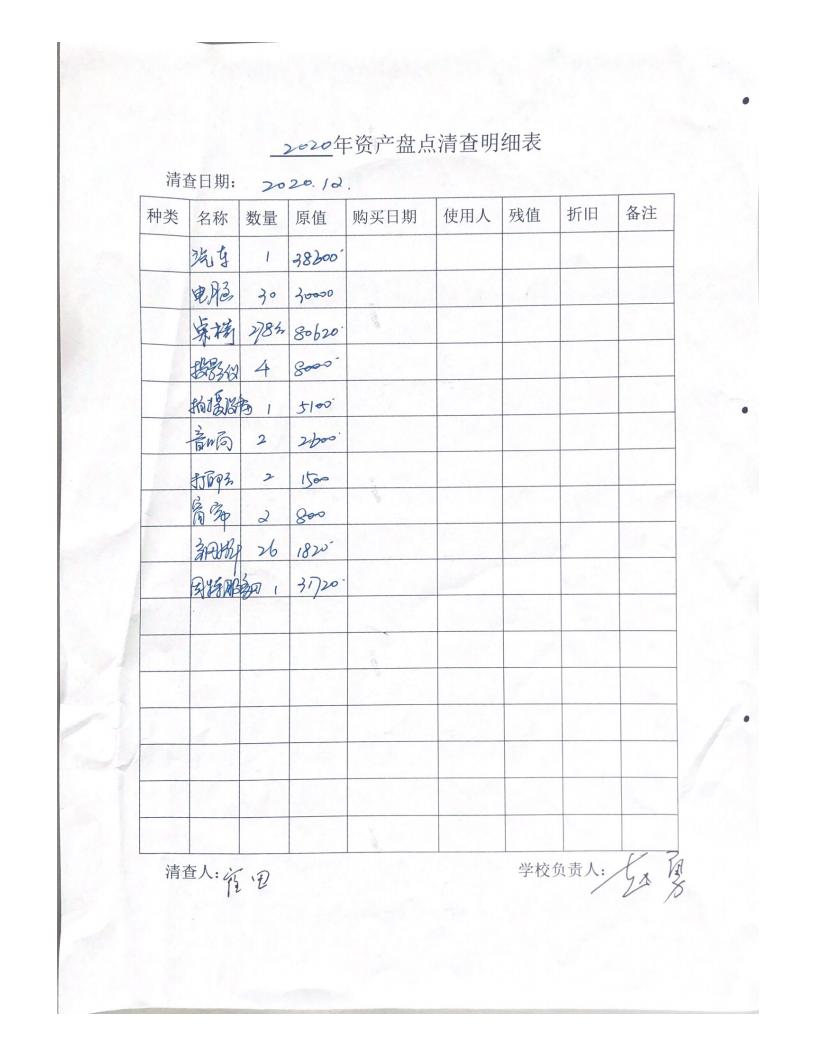 2020年资产盘点清查明细表
清查日期： 2020.12.
种类 名称 数量 原值 购买日期 使用人 残值 折旧 备注
汽车 1 38600
电脑 30 30000
桌椅 278 80620
投影仪 4 8000
拍摄设备 1 5100
音响 2 2600
打印 2 1500
2 800
26 1820
1 31720
清查人：
学校负责人：